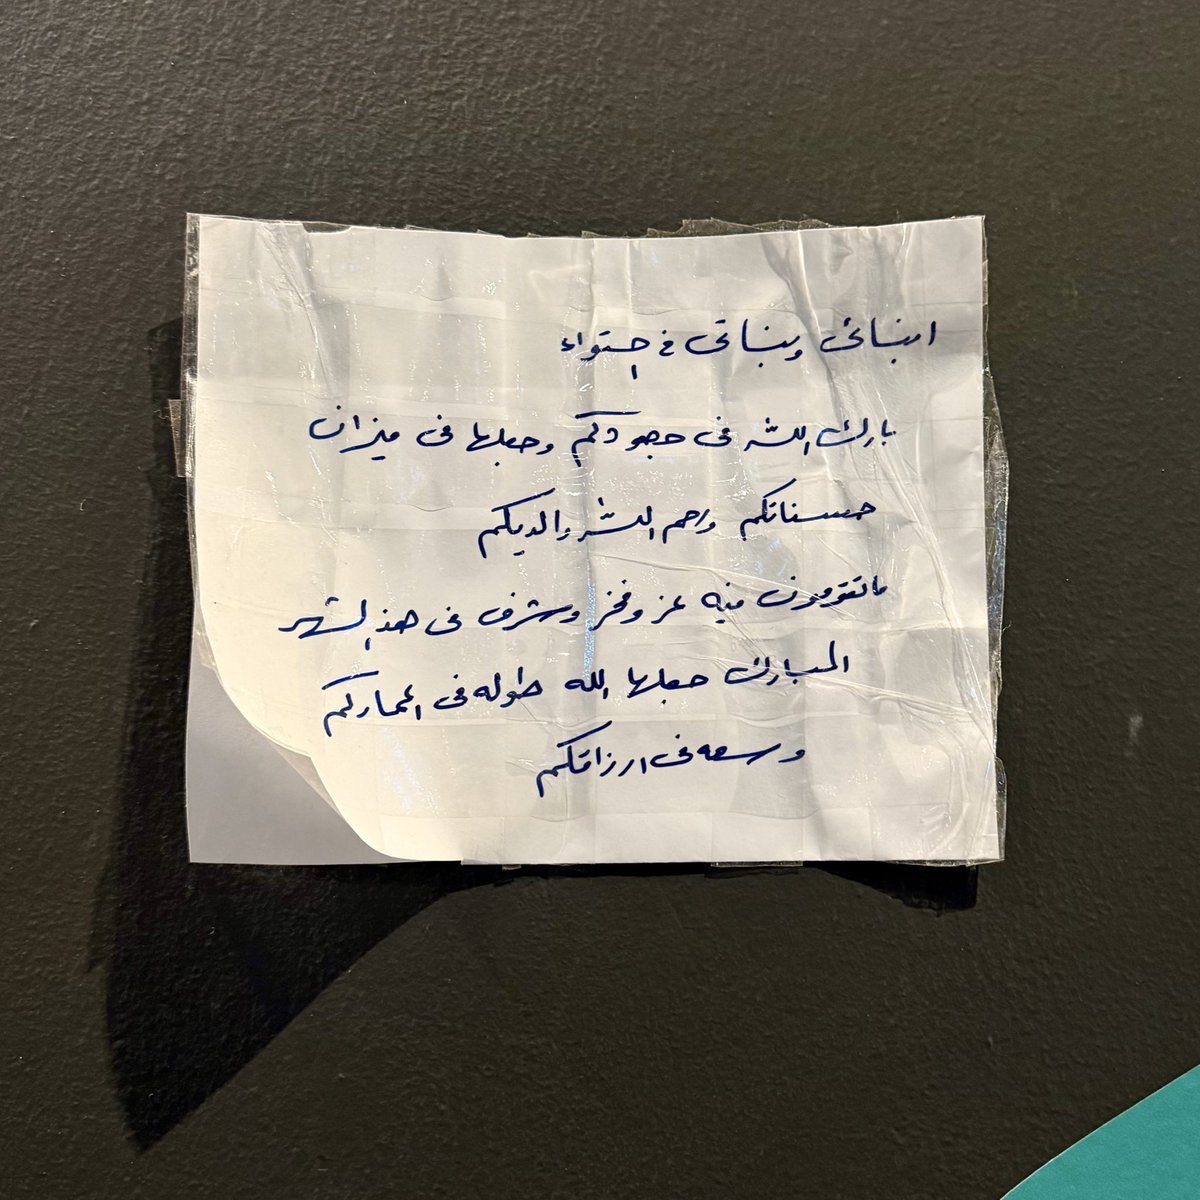 ابنائى وبناتى في إحتواء
بارك الله فى جهودكم وجعلها فى ميزان
حسناتكم ورحم الله والديكم
ماتقومون فيه عز وفخر وشرف فى هذ الشهر
المبارك جعلها الله طوله فى اعماركم
وسعه فى ارزاقكم